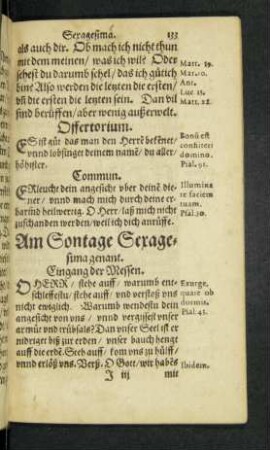 Sexagesima. 133
als auch dir. Ob mach ich nicht thun
mit dem meinen/ was ich wil? Oder
sehest du darumb schel/ das ich gütich
bin? Also werden die letzten die ersten/
vñ die ersten die letzten sein. Dan vil
sind berüffen/ aber wenig außerwelt.
Matt. 19.
Mar. 10.
Luc. 13.
Matt. 22.
Offertorium.
ES ist gůt das man den Herrē bekēne/
vnnd lobsinge deinem namē/ du aller
höhister.
Bonū est
confiteri
domino.
Psal. 91.
Commun.
ERleucht dein angesicht vber deinē die-
ner/ vnnd mach mich durch deine er-
barmd heilwertig. O Herr/ laß mich nicht
zuschanden werden/ weil ich dich anrüffe.
Illumina
faciem
tuam.
Psal. 30.
Am Sontage Sexage-
sima genant.
Eingang der Messen.
O HERR/ stehe auff/ warumb ent-
schleffestu/ stehe auff/ vnd verstoß vns
nicht entzlich. Warumb wendestu dein
angesicht von vns/ vnnd vergissest vnser
armüt vnd trübsals? Dan vnser Seel ist er
nidriget biß zur erden/ vnser bauch hengt
auff die erdē. Steh auff/ kom vns zu hülff/
vnnd erlöß vns. Verß. O Gott/ wir habēs
Exurge,
quare ob
dormis.
Psal. 43.
Ibidem.
J iij mit